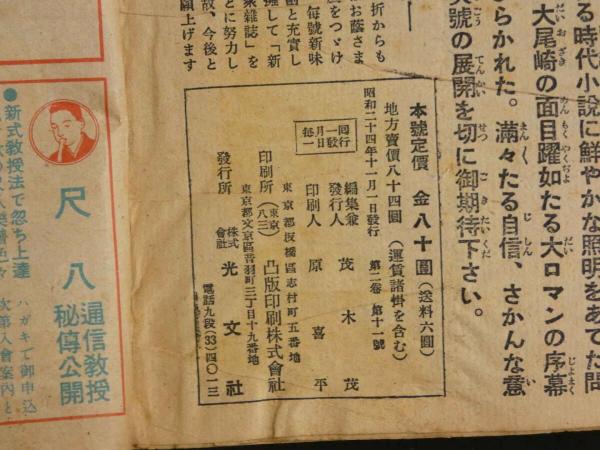 る時代小説に鮮やかな照明をあてた問
大尾崎の面目躍如たる大ロマンの序幕
ひらかれた。滿々たる自信、さかんな意
次號の展開を切に御期待下さい。
折からも
お蔭さま
をつゞけ
每號新味
割と充實し
強して「新
衆雜誌」を
とに努力し
故、今後と
願上げます
本號定價 金八十圓（送料六圓）
地方賣價八十四圓（運賃諸掛を含む）
昭和二十四年十一月一日發行 第二卷 第十一號
每月一回一日發行
編集兼發行人 茂木茂
印刷人 原喜平
東京都板橋區志村町五番地
印刷所（東京八三） 凸版印刷株式會社
東京都文京區音羽町三丁目十九番地
發行所 株式會社 光文社
電話九段（33）四〇一三
尺八 通信教授 秘傳公開
●新式教授法で忽ち上達
ハガキで御申込
次第入會案内と